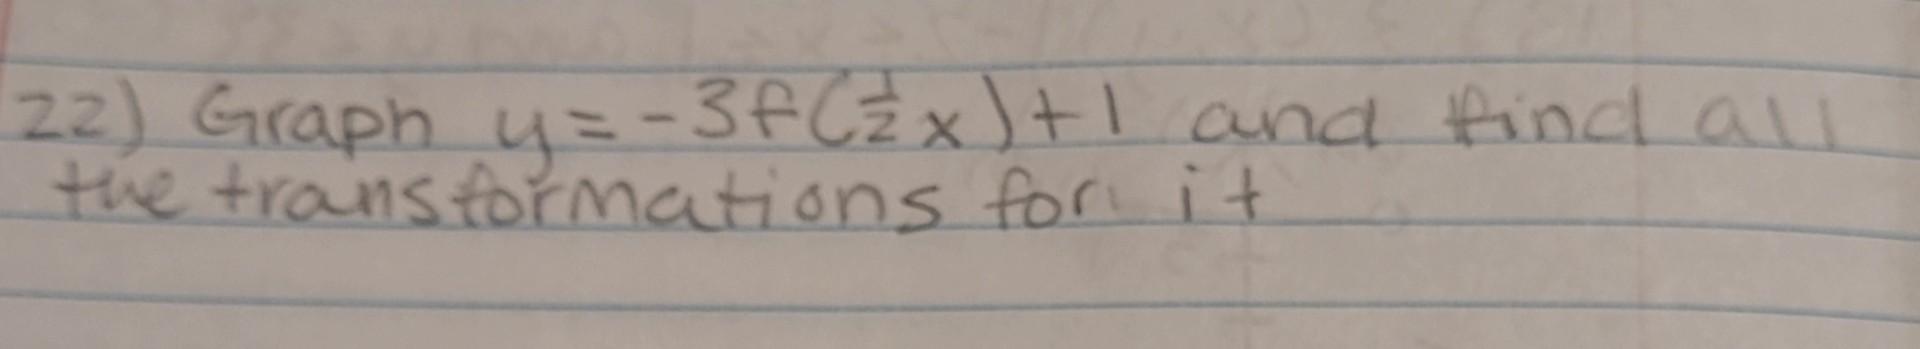 22) Graph y=-3f(½x)+1 and find all
the transformations for it